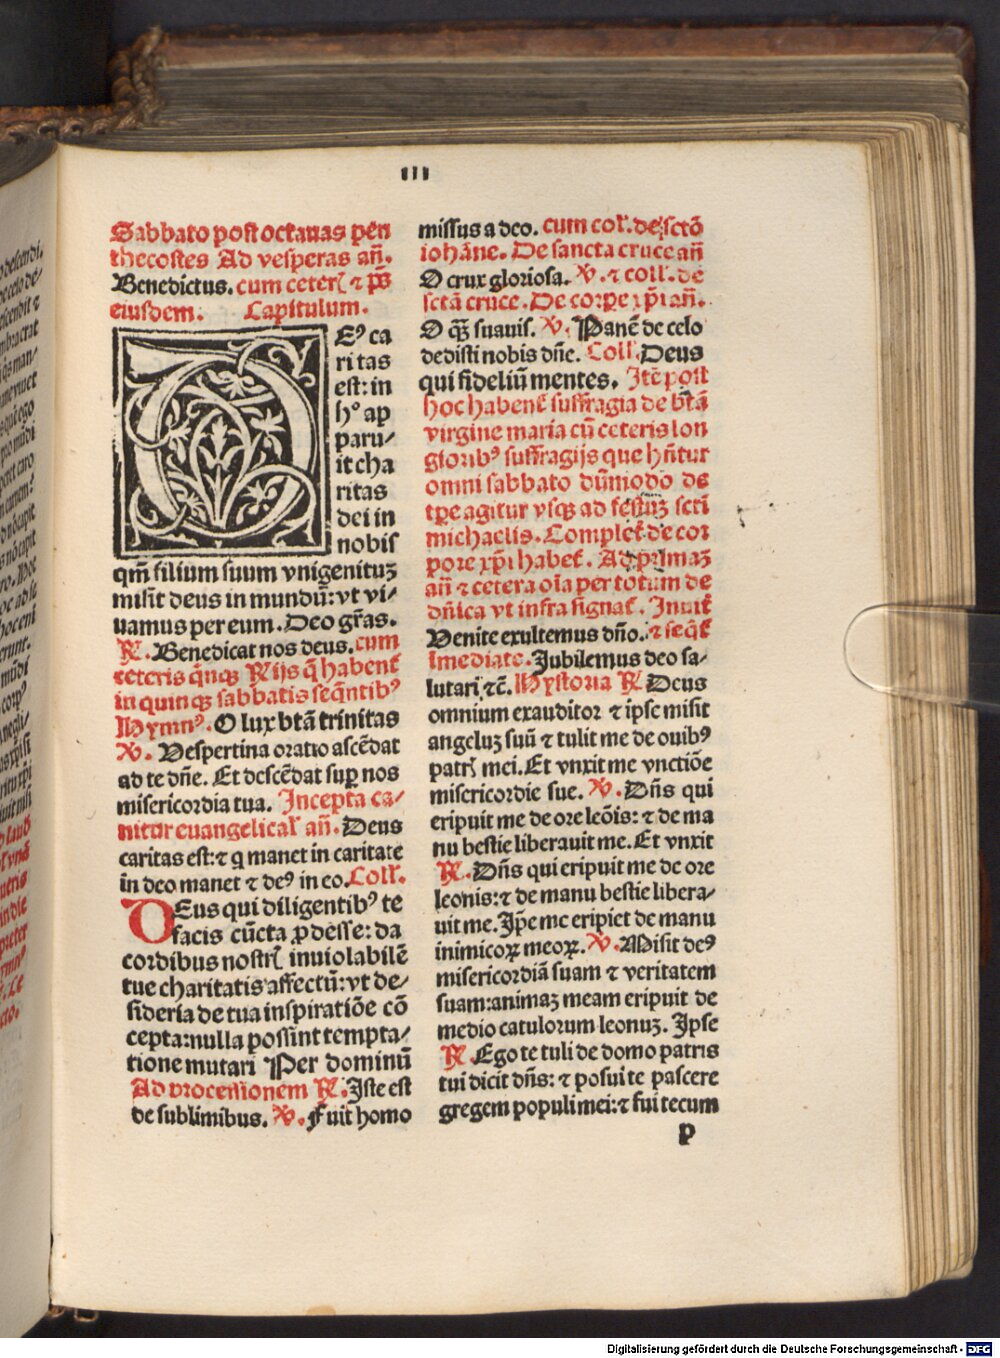 III
Sabbato post octauas pen
thecostes Ad vesperas añ.
Benedictus. cum ceterꝭ ⁊ ps̃
eiusdem. Capitulum.
Eꝰ ca
ritas
est: in
hͦ ap
paru⸗
it cha
ritas
dei in
nobis
qm̃ filium suum vnigenituꝫ
misit deus in mundũ: vt vi⸗
uamus per eum. Deo gr̃as.
℟. Benedicat nos deus. cum
ceteris q̃nqꝫ ℟ijs q̃ habent̃
in quinqꝫ sabbatis seq̃ntibꝰ
Hymnꝰ. O lux btã trinitas
℣. Vespertina oratio ascẽdat
ad te dñe. Et descẽdat sup̱ nos
misericordia tua. Incepta ca⸗
nitur euangelical̃ añ. Deus
caritas est: ⁊ q manet in caritate
in deo manet ⁊ deꝰ in eo. Coll̃.
DEus qui diligentibꝰ te
facis cũcta ꝓdesse: da
cordibus nostrꝭ inuiolabilẽ
tue charitatis affectũ: vt de⸗
sideria de tua inspiratiõe cõ
cepta: nulla possint tempta⸗
tione mutari Per dominũ
Ad processionem ℟. Iste est
de sublimibus. ℣. Fuit homo
missus a deo. cum col̃. de sctõ
iohãne. De sancta cruce añ
O crux gloriosa. ℣. ⁊ coll̃. de
sctã cruce. De corꝑe xp̃i añ.
O qꝫ suauis. ℣. Panẽ de celo
dedisti nobis dñe. Coll̃. Deus
qui fideliũ mentes. Itẽ post
hoc habent̃ suffragia de btã
virgine maria cũ ceteris lon
gioribꝰ suffragijs que hñtur
omni sabbato dũmodo de
tꝑe agitur vsqꝫ ad festuꝫ scti
michaelis. Complet̃ de cor
pore xp̃i habet̃. Ad primaꝫ
añ ⁊ cetera oĩa per totum de
dñica vt infra signat̃. Inuit̃
Venite exultemus dño. ⁊ seq̃t̃
Imediate. Jubilemus deo sa⸗
lutari ⁊c̃. Hystoria ℟ Deus
omnium exauditor ⁊ ipse misit
angeluꝫ suũ ⁊ tulit me de ouibꝰ
patrꝭ mei. Et vnxit me vnctiõe
misericordie sue. ℣. Dñs qui
eripuit me de ore leõis: ⁊ de ma
nu bestie liberauit me. Et vnxit
℟. Dñs qui eripuit me de ore
leonis: ⁊ de manu bestie libera⸗
uit me. Ip̃e me eripiet de manu
inimicoꝝ meoꝝ. ℣. Misit deꝰ
misericordiã suam ⁊ veritatem
suam: animaꝫ meam eripuit de
medio catulorum leonuꝫ. Ipse
℟. Ego te tuli de domo patris
tui dicit dñs: ⁊ posui te pascere
gregem populi mei: ⁊ fui tecum
p
Digitalisierung gefördert durch die Deutsche Forschungsgemeinschaft - DFG